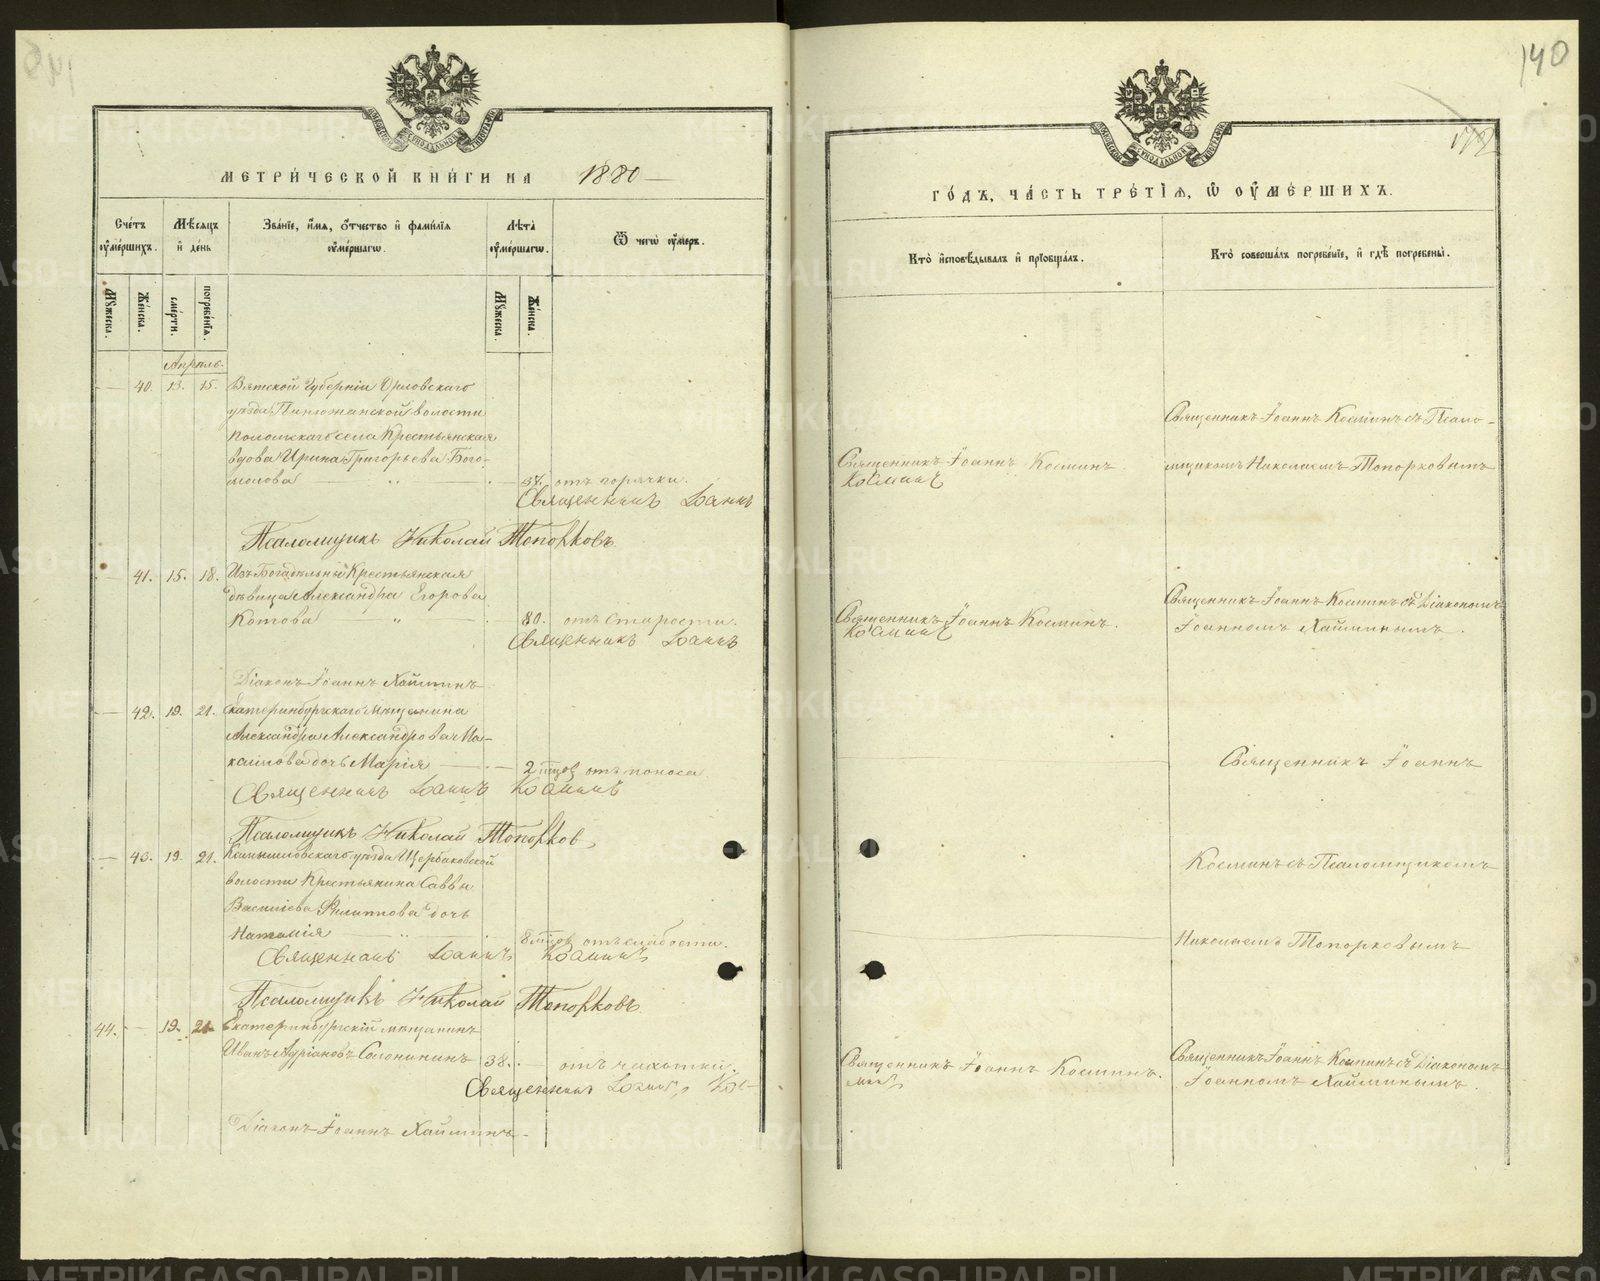 140
172
МЕТРИЧЕСКОЙ КНИГИ НА 1880
Счетъ умершихъ.
Мѣсяцъ и день
Званіе, имя, отчество и фамилія умершаго.
Лѣта умершаго.
Отъ чего умеръ.
Мужеска.
Женска.
смерти.
погребенія.
Мужеска.
Женска.
Апрѣль.
40. 13. 15. Вятской Губерніи Орловскаго
уѣзда Пинюжанской волости
села Крестьянская
вдова Ирина Григорьева Бого-
молова 37. отъ горячки.
Священникъ Іоаннъ
Псаломщикъ Николай Топорковъ
41. 15. 18. Изъ Богадѣльни Крестьянская
дѣвица Александра Егорова
Котова 80. отъ старости.
Священникъ Іоаннъ
Діаконъ Іоаннъ Хайминъ
42. 19. 21. Екатеринбургскаго мѣщанина
Александра Александрова Ма-
дочь Марія 2 мцов отъ поноса.
Священникъ Іоаннъ Косминъ
Псаломщикъ Николай Топорков
43. 19. 21. Камышловскаго уѣзда Щербаковской
волости Крестьянина Саввы
Василіева Филиппова дочь
Наталія 8 мцов отъ слабости.
Священникъ Іоаннъ Косминъ
Псаломщикъ Николай Топорковъ
44. 19. 21. Екатеринбургскій мѣщанинъ
Иванъ Адріановъ Солонининъ 38. отъ чахотки.
Священникъ Іоаннъ Кос-
Діаконъ Іоаннъ Хайминъ
ГОДЪ, ЧАСТЬ ТРЕТІЯ, О УМЕРШИХЪ.
Кто исповѣдывалъ и пріобщалъ.
Кто совершалъ погребеніе, и гдѣ погребены.
Священникъ Іоаннъ Косминъ съ Псало-
Священникъ Іоаннъ Косминъ мщикомъ Николаемъ Топорковымъ
Косминъ
Священникъ Іоаннъ Косминъ съ Діакономъ
Священникъ Іоаннъ Косминъ. Іоанномъ Хайминымъ.
Косминъ
Священникъ Іоаннъ
Косминъ съ Псаломщикомъ
Николаемъ Топорковымъ
Священникъ Іоаннъ Косминъ съ Діакономъ
Священникъ Іоаннъ Косминъ. Іоанномъ Хайминымъ.
минъ
METRIKI.GASO-URAL.RU